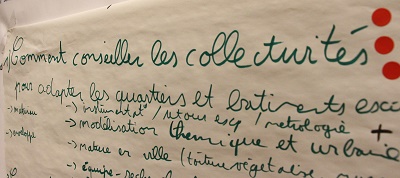 Comment conseiller les collectivités
pour adapter les quartiers et batiments
-> instrumentat° / retours exp / métrologie +
-> modélisation thermique et urbaine
-> enveloppe
en ville (toiture végétalisée
équipe